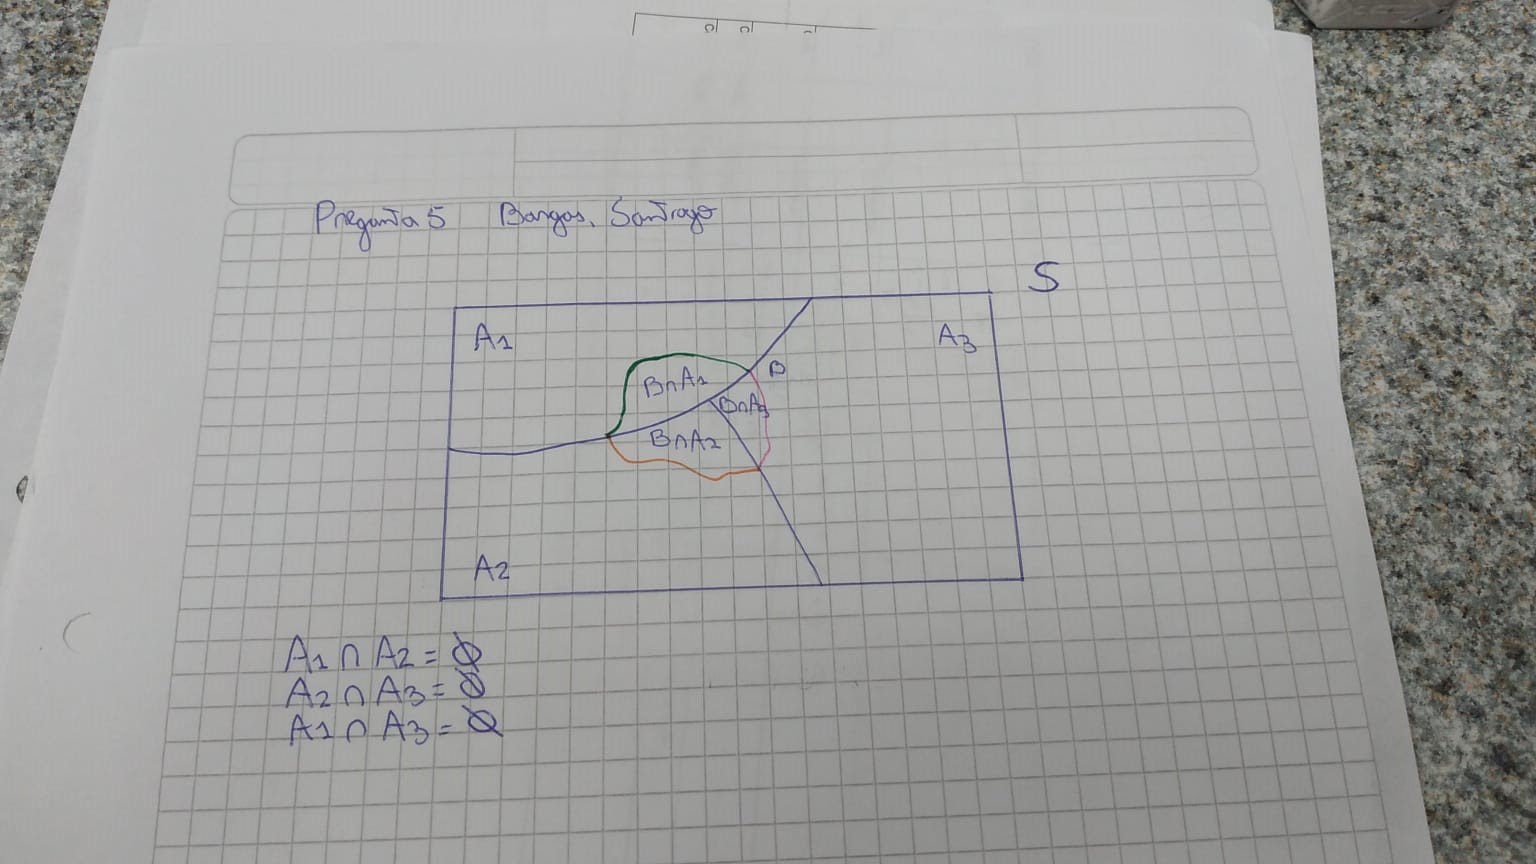 Pregunta 5 Bargas, Santiago
S
A1
A3
B
B∩A1
B∩A3
B∩A2
A2
A1 ∩ A2 = Ø
A2 ∩ A3 = Ø
A1 ∩ A3 = Ø